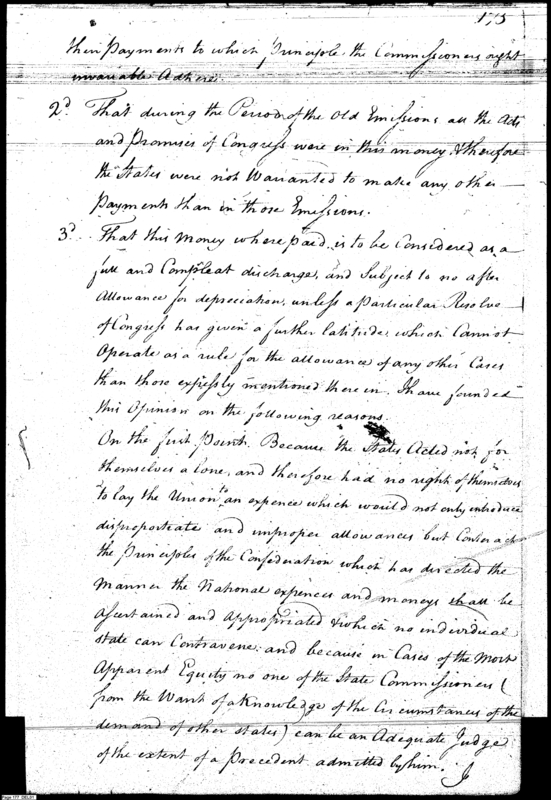 175
their payments to which Principle the Commissioners ought
invariable Adhere.
2d. That during the Period of the Old Emissions all the Acts
and Promises of Congress were in this money & therefore
the States were not Warranted to make any other
Payments than in those Emissions.
3d. That this Money where paid is to be Considered as a
full and Compleat discharge, and Subject to no after
Allowance for depreciation, unless a Particular Resolve
of Congress has given a further latitude, which Cannot
Operate as a rule for the allowance of any other Cases
than those expressly mentioned therein. I have founded
this Opinion on the following reasons.
On the first point. Because the States Acted not for
themselves alone, and therefore had no right of themselves
to lay the Union to an expence which would not only introduce
disproportionate and improper allowances but Contradict
the Principles of the Confederation which has directed the
Manner the National expences and moneys shall be
Ascertained and Appropriated & which no individual
state can Contravene; and because in Cases of the Most
Apparent Equity no one of the State Commissioners (
from the Want of a Knowledge of the Circumstances of the
demand of other states) can be an Adequate Judge
of the extent of a Precedent admitted by him. I